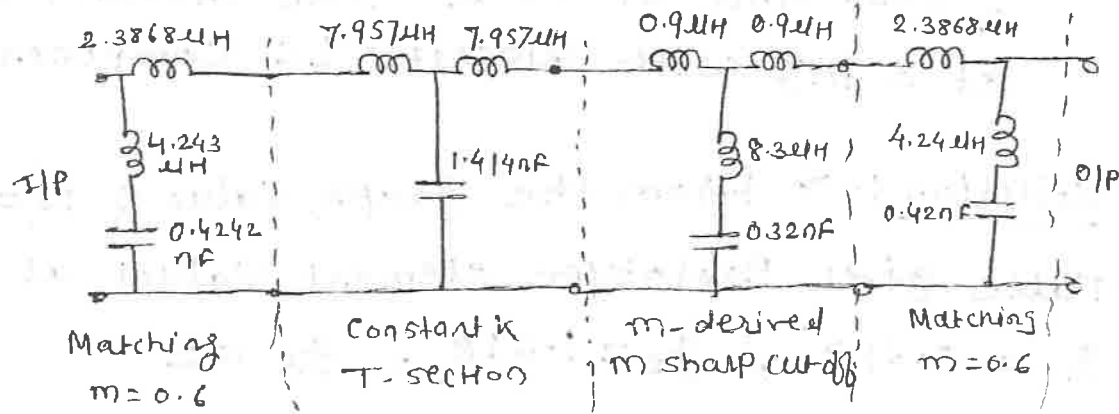 2.3868μH
7.957μH 7.957μH
0.9μH 0.9μH
2.3868μH
I/P
4.243
μH
0.4242
nF
1.414nF
8.3μH
0.32nF
4.24μH
0.42nF
O/P
Matching
m=0.6
Constant k
T-section
m-derived
m sharp cutoff
Matching
m=0.6